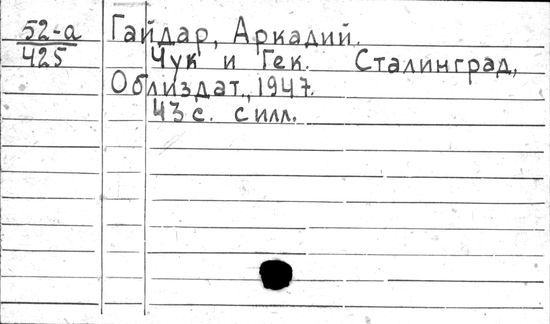 52-а
425
Гайдар, Аркадий.
Чук и Гек. Сталинград,
Облиздат, 1947.
43 с. с илл.